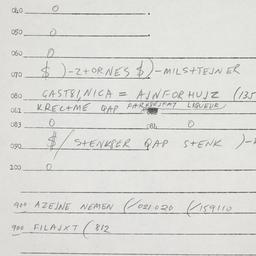 040 0
050 0
060 0
070 $ )-Z+ORNES $)-MILS+EJNER
080 GASTBI,NICA = AJNFORHUJZ (135
081 KREC+ME QAP LIQUEUR
083 0 084 0
090 $/ S+ENKRER QAP S+ENK )-
100 0
900 AZEJNE NEMEN (/021020 (/159110
900 FILAJXT (812